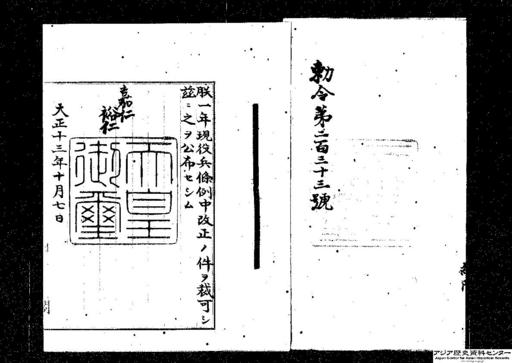 勅令第二百三十三號
朕一年現役兵條例中改正ノ件ヲ裁可シ
茲ニ之ヲ公布セシム
嘉仁
裕仁
天皇
御璽
大正十三年十月七日
アジア歴史資料センター
Japan Center for Asian Historical Records